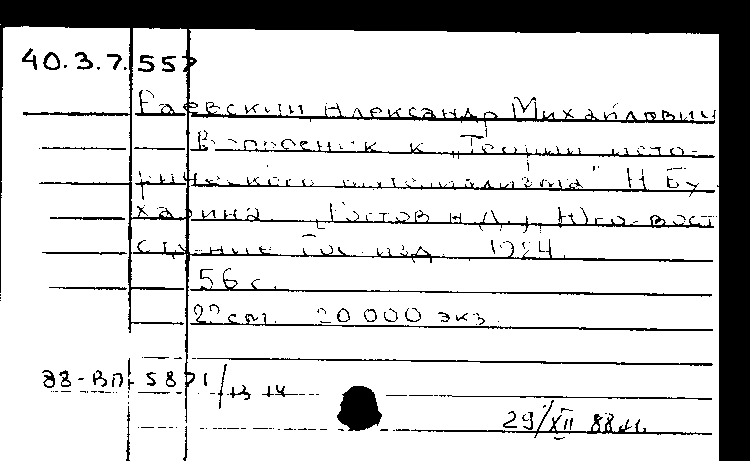 40.3.7.557
Раевский, Александр Михайлович
Вопросник к „Теории исто-
рического материализма" Н. Бу-
харина. [Ростов н/Д.], Юго-вост.
отд-ние Гос. изд. 1924.
56 с.
20 000 экз.
88-ВП-5871/13 14
29/XII 88